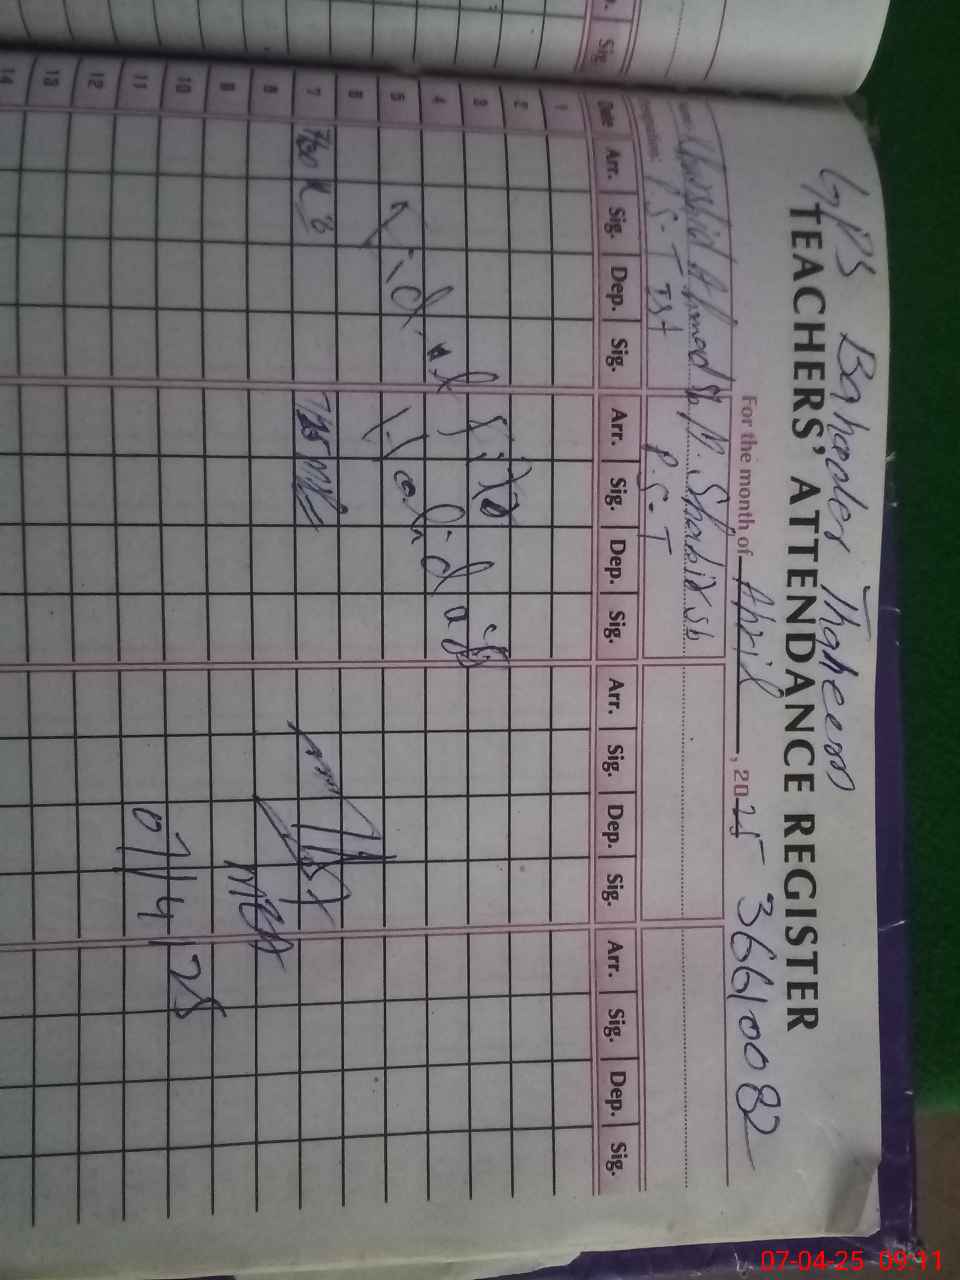 GPS Bahader Thaheem
TEACHERS' ATTENDANCE REGISTER
For the month of April, 2025 36610082
Khurshid Ahmad Sb M. Shabir Sb
P.S.T P.S.T
Date Arr. Sig. Dep. Sig. Arr. Sig. Dep. Sig. Arr. Sig. Dep. Sig. Arr. Sig. Dep. Sig.
1
2
3
4
5
6
7
8
9
10
11
12
13
14
Holidays
MEA
07/4/25
Sig.
07-04-25 09:11